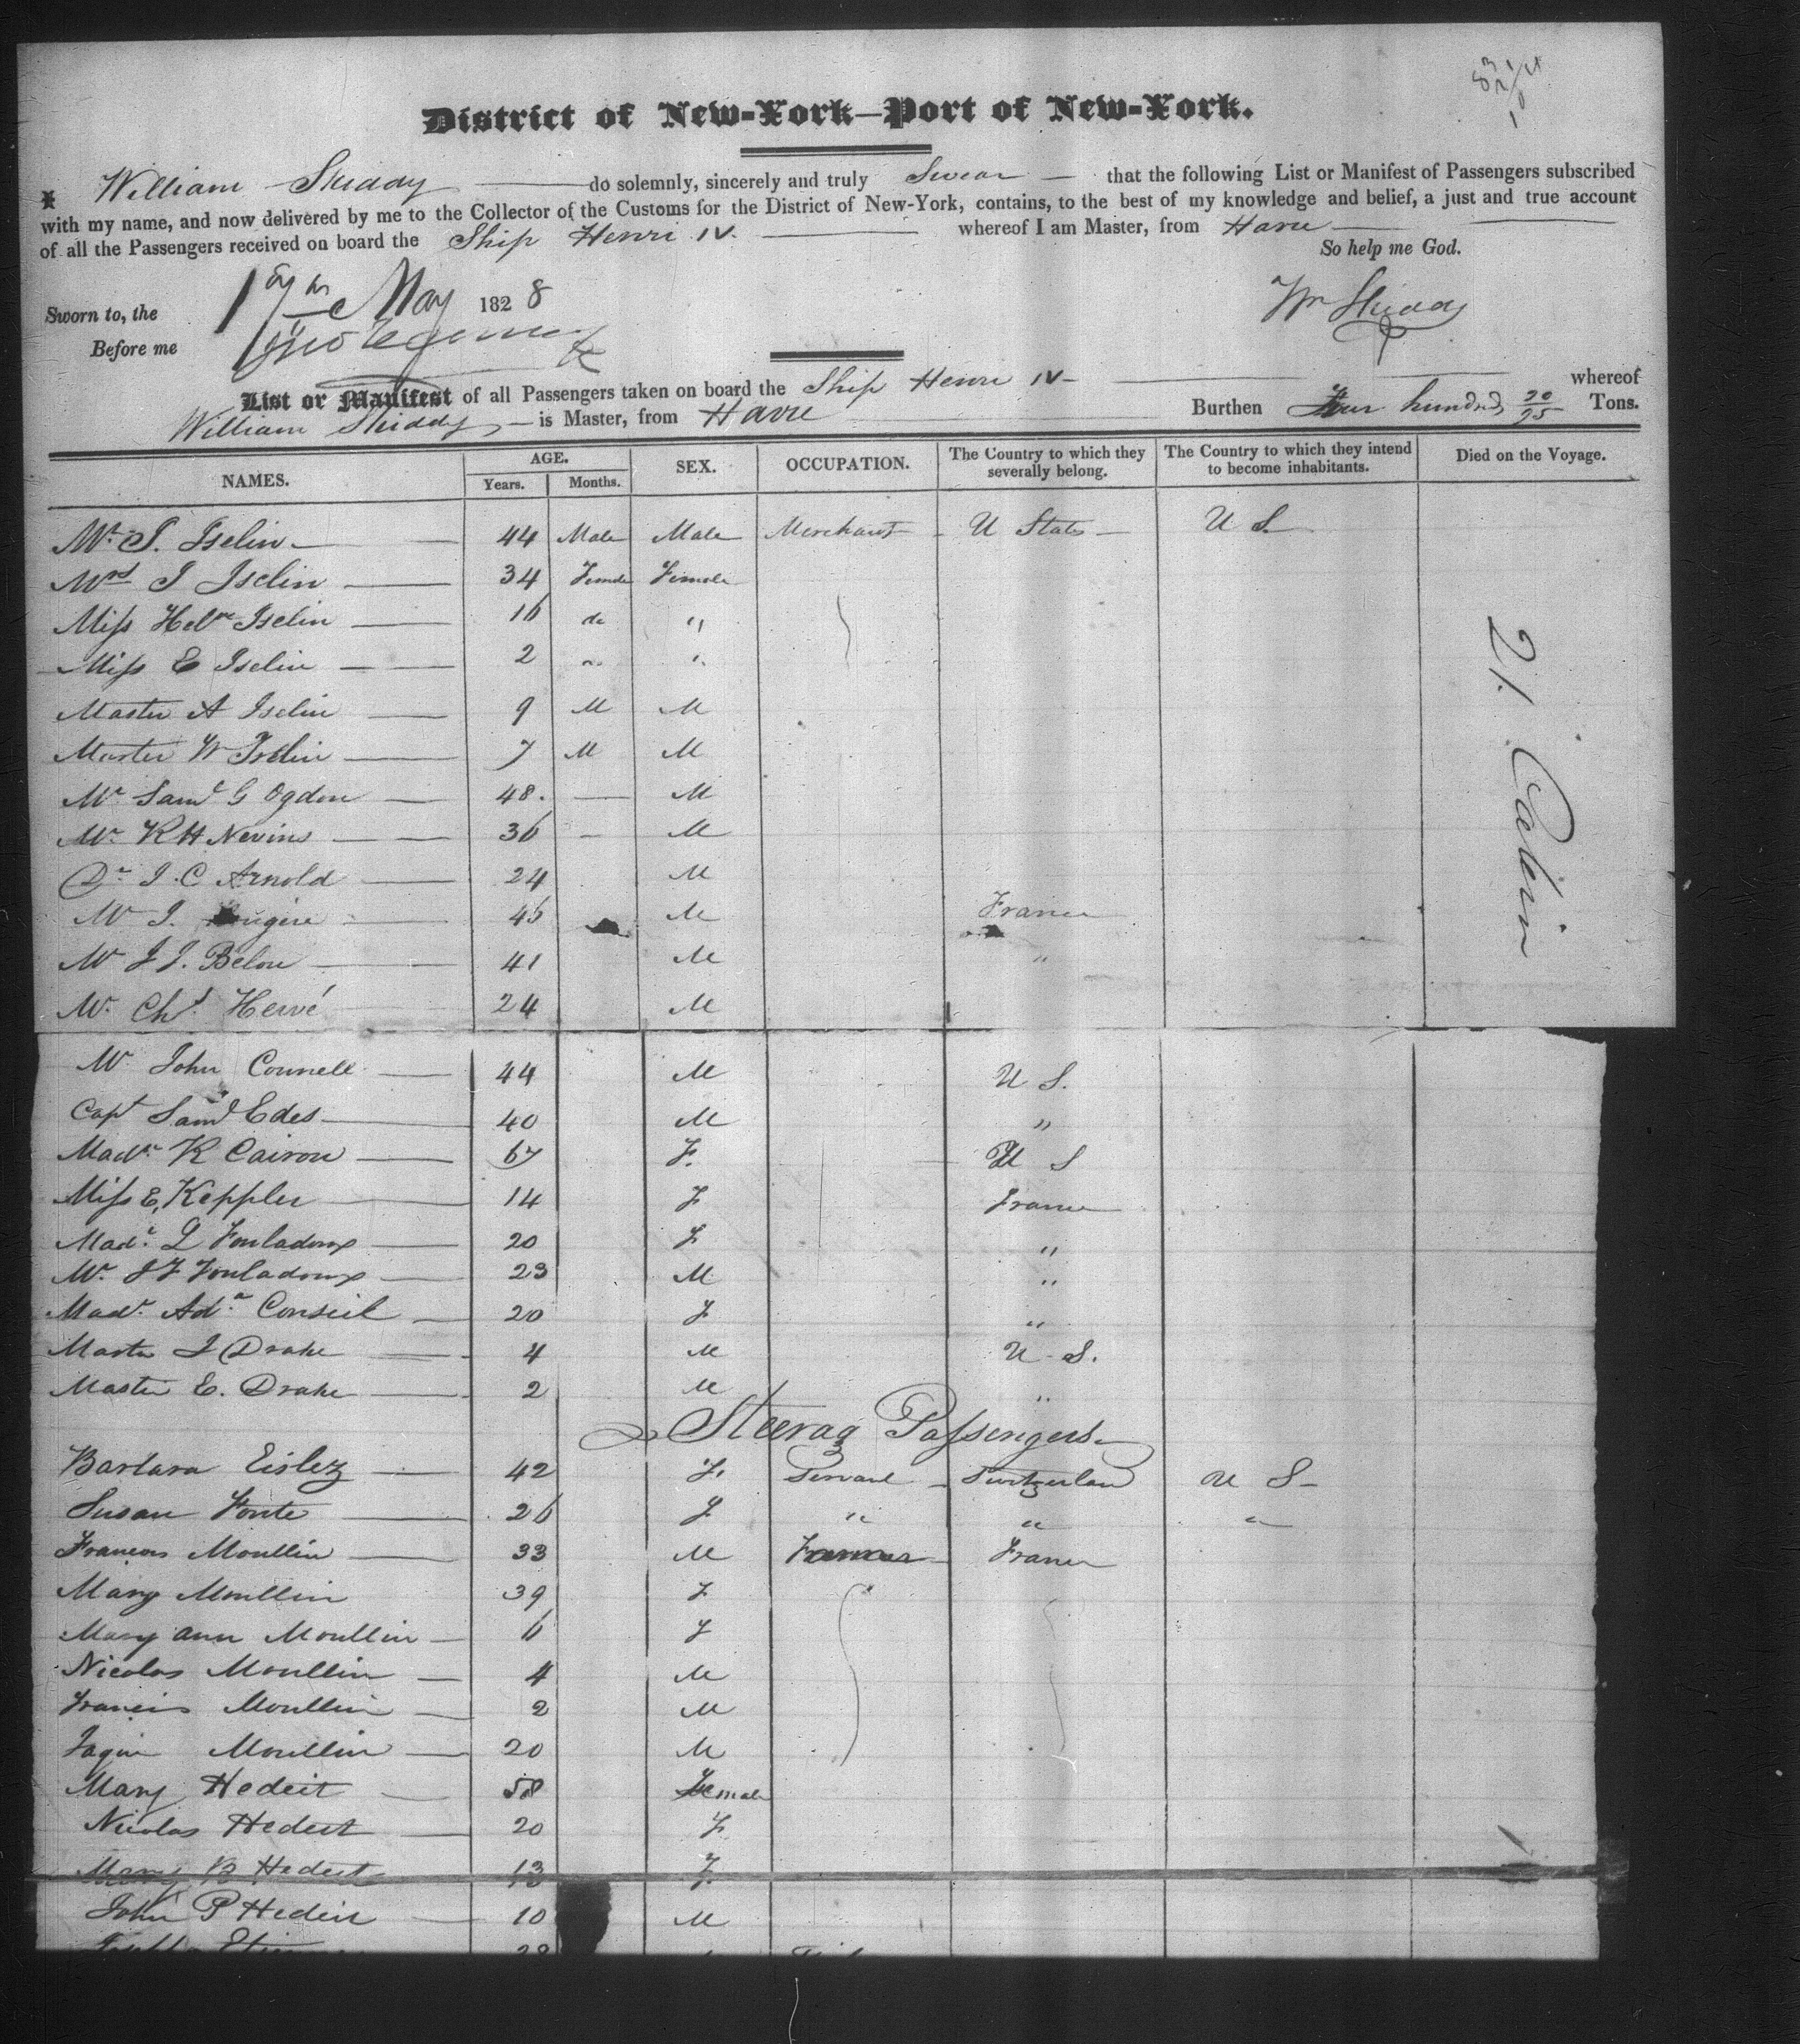 District of New-York—Port of New-York.
William Skiddy do solemnly, sincerely and truly Swear that the following List or Manifest of Passengers subscribed
with my name, and now delivered by me to the Collector of the Customs for the District of New-York, contains, to the best of my knowledge and belief, a just and true account
of all the Passengers received on board the Ship Henri IV. whereof I am Master, from Havre
So help me God.
Sworn to, the 19th May 1828
Wm Skiddy
Before me
List or Manifest of all Passengers taken on board the Ship Henri IV whereof
William Skiddy is Master, from Havre Burthen Four hundred 20/95 Tons.
NAMES. AGE. Years. Months. SEX. OCCUPATION. The Country to which they severally belong. The Country to which they intend to become inhabitants. Died on the Voyage.
Mr I. Iselin 44 Male Male Merchant U States U S.
Mrs I Iselin 34 Female Female
Miss Helne Iselin 16 do "
Miss E Iselin 2 " "
Master A Iselin 9 M M
Master W Iselin 7 M M
Mr Saml G Ogden 48. M
Mr R H Nevins 36 M
Dr I. C Arnold 24 M
Mr I. 45 M France
Mr J J. Belou 41 M "
Mr Chs Hervé 24 M
21. Cabin
Mr John Connell 44 M U S.
Capt Saml Edes 40 M "
Made K Cairon 67 F. U S
Miss E, Keppler 14 F France
Made L Fouladoux 20 F "
Mr J F Fouladoux 23 M "
Made Ada Conseil 20 F "
Master J Drake 4 M U S.
Master E. Drake 2 M "
Steerag Passengers
Barbara Eislez 42 F. Servant Switzerlan U S
Susan Fonte 26 F " " "
Francois Moullin 33 M Farmer France
Mary Moullin 39 F
Mary ann Moullin 6 F
Nicolas Moullin 4 M
Francis Moullin 2 M
Moullin 20 M
Mary Hedeit 58 Female
Nicolas Hedert 20 F
Mary B Hedert 13 F.
John P Hedeit 10 M
28